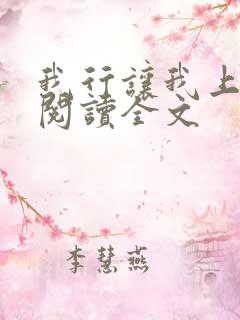 我行讓我上
閱讀全文
李慧燕